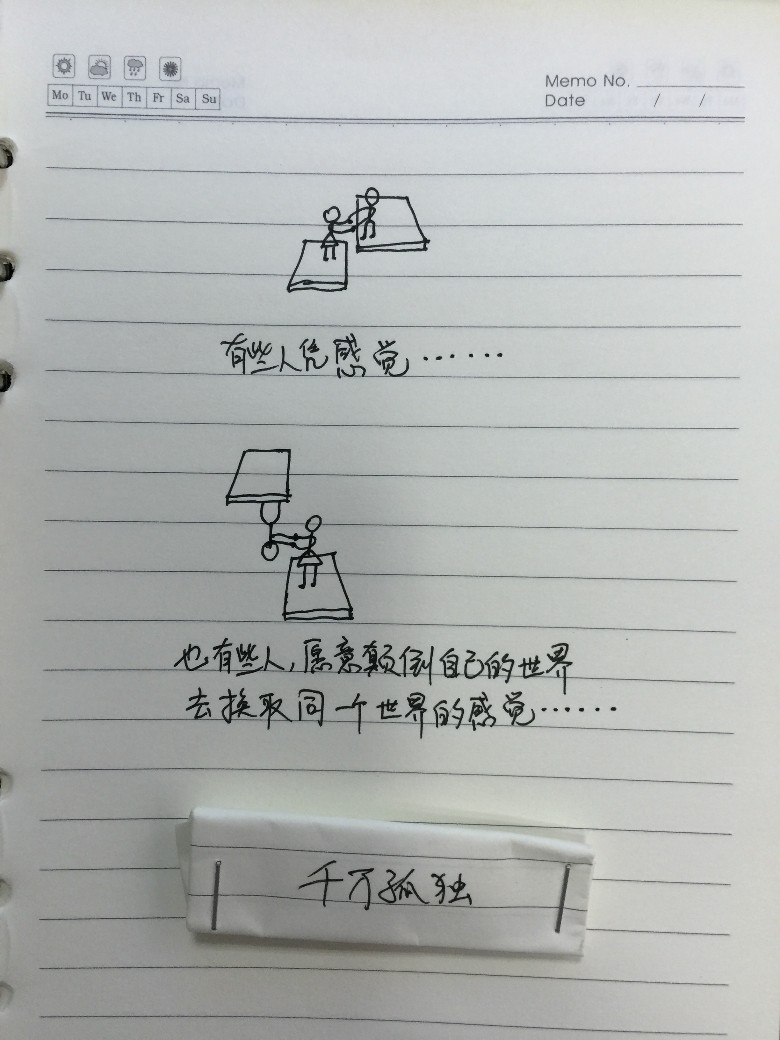 Mo Tu We Th Fr Sa Su
Memo No.
Date / /
有些人凭感觉……
也有些人，愿意颠倒自己的世界
去换取同一个世界的感觉……
千万孤独